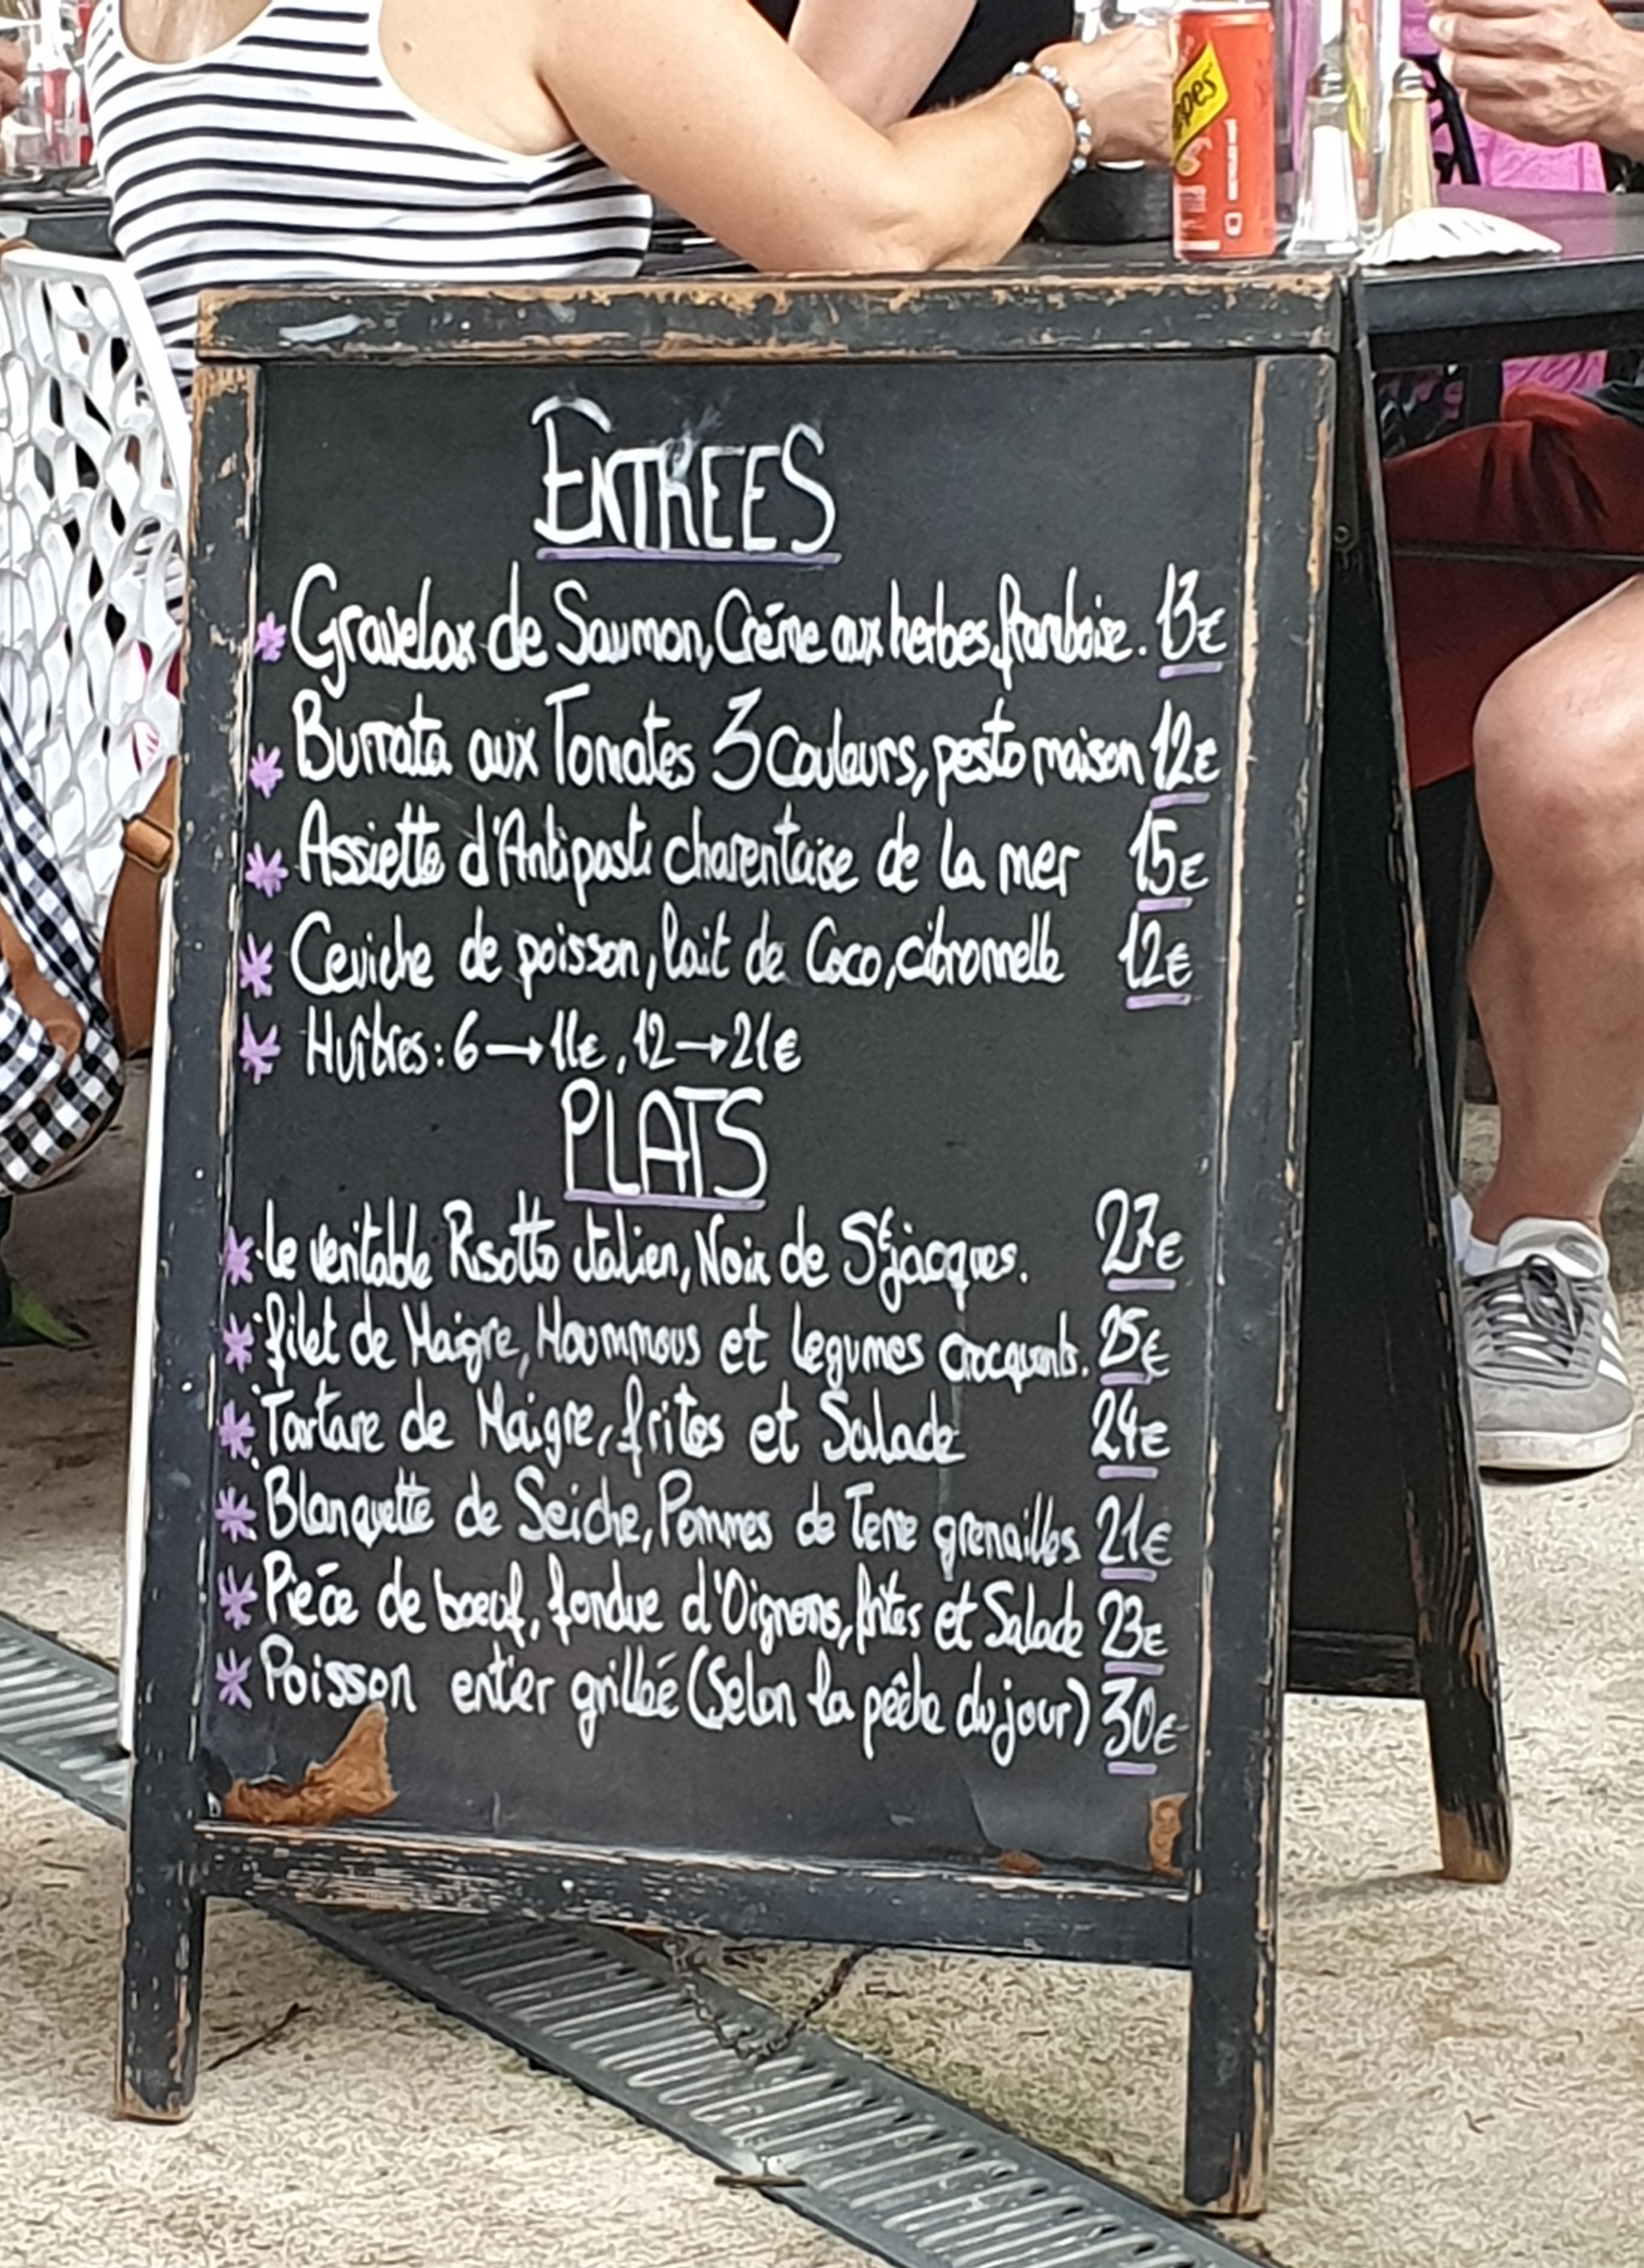 ppes
ENTREES
* Gravelax de Saumon, Crème aux herbes, framboise. 13€
* Burrata aux Tomates 3 Couleurs, pesto maison 12€
* Assiette d'Antipasti charentaise de la mer 15€
* Ceviche de poisson, lait de Coco, citronnelle 12€
* Huîtres : 6 → 11€, 12 → 21€
PLATS
* Le veritable Risotto italien, Noix de St jacques. 27€
* filet de Maigre, Hoummous et legumes croquants. 25€
* Tartare de Maigre, frites et Salade 24€
* Blanquette de Seiche, Pommes de Terre grenailles 21€
* Piéce de boeuf, fondue d'Oignons, frites et Salade 23€
* Poisson entier grilleé (Selon la pêche du jour) 30€